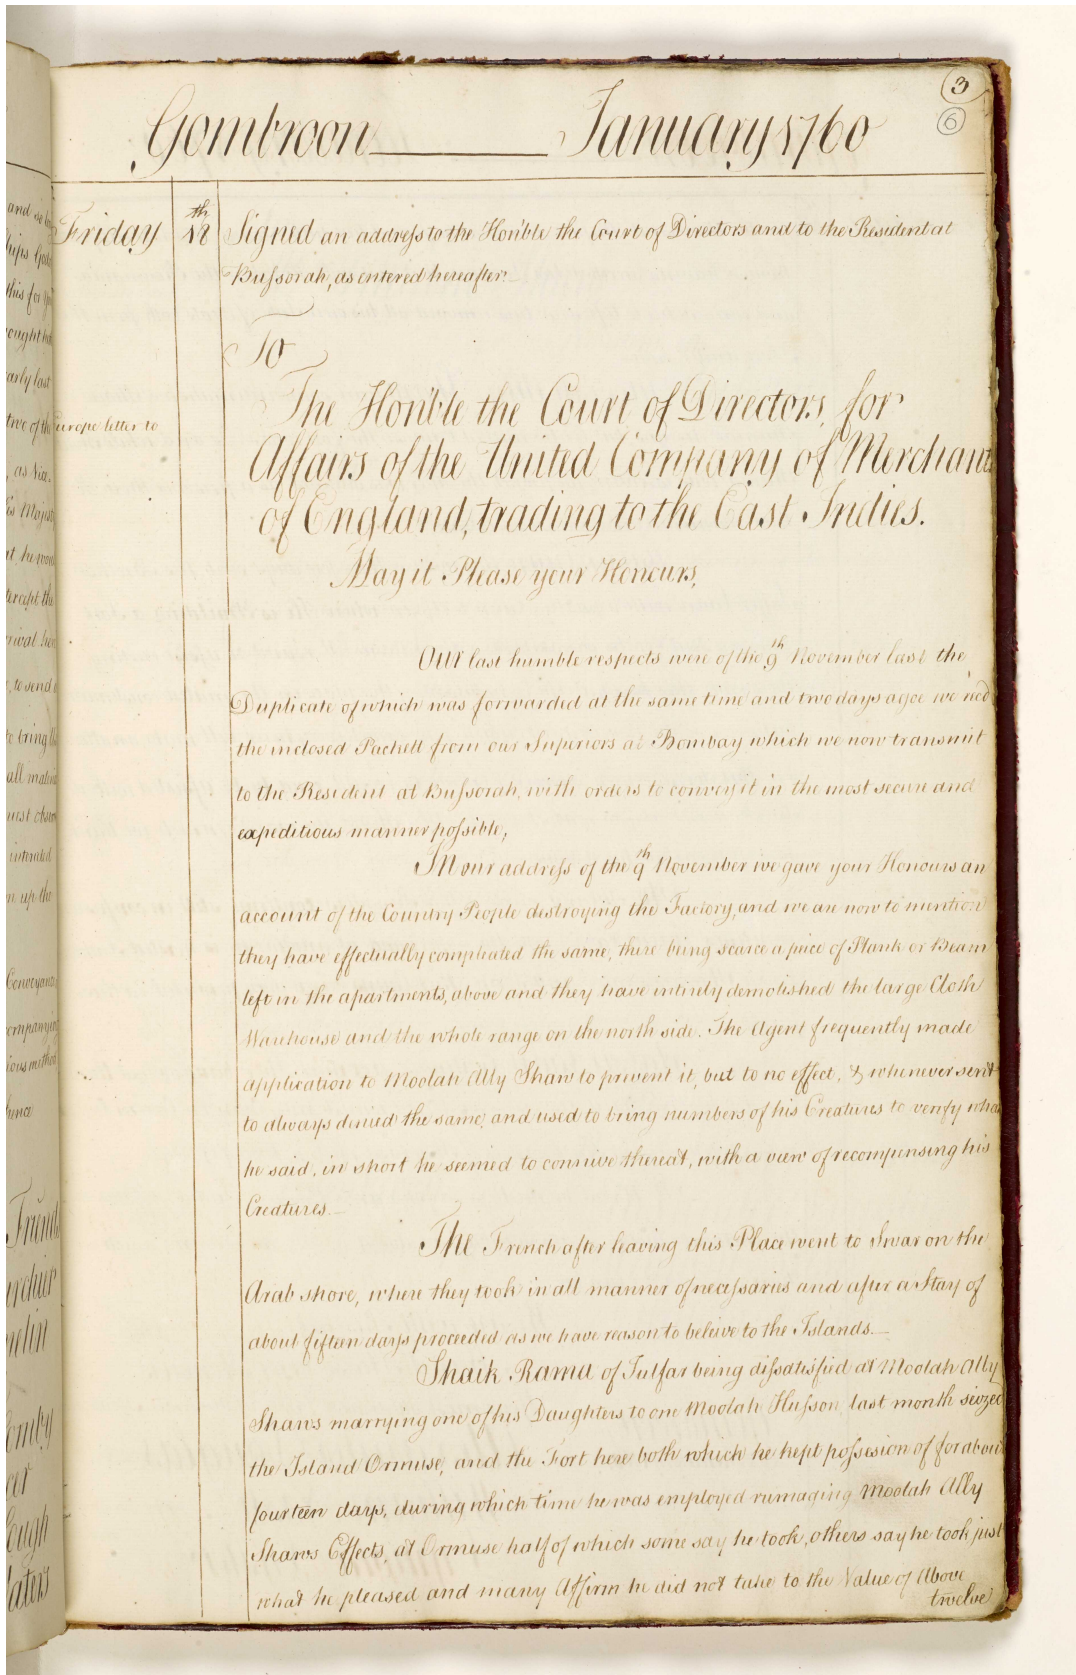 3
6
Gombroon January 1760
Friday 18th Signed an address to the Hon'ble the Court of Directors and to the Resident at
Bussorah, as entered hereafter.
To
The Hon'ble the Court of Directors, for
Affairs of the United Company of Merchants
Europe letter to
of England, trading to the East Indies.
May it Please your Honours,
Our last humble respects were of the 9th November last the
Duplicate of which was forwarded at the same time and two days agoe we rec'd
the inclosed Packett from our Superiors at Bombay which we now transmit
to the Resident at Bussorah, with orders to convey it in the most secure and
expeditious manner possible,
In our address of the 9th November we gave your Honours an
account of the Country People destroying the Factory, and we are now to mention
they have effectually compleated the same, there being scarce a piece of Plank or Beam
left in the apartments, above and they have intirely demolished the large Cloth
Warehouse and the whole range on the north side. The Agent frequently made
application to Moolah Ally Shaw to prevent it, but to no effect, & whenever sent
to always denied the same, and used to bring numbers of his Creatures to verify what
he said, in short he seemed to connive thereat, with a view of recompensing his
Creatures.
The French after leaving this Place went to Swar on the
Arab shore, where they took in all manner of necessaries and after a Stay of
about fifteen days proceeded as we have reason to beleive to the Islands.
Shaik Rama of Julfar being dissatisfied at Moolah Ally
Shaws marrying one of his Daughters to one Moolah Husson, last month seized
the Island Ormuse, and the Fort here both which he kept possesion of for about
fourteen days, during which time he was employed rumaging Moolah Ally
Shaws Effects, at Ormuse half of which some say he took, others say he took just
what he pleased and many Affirm he did not take to the Value of Above
twelve